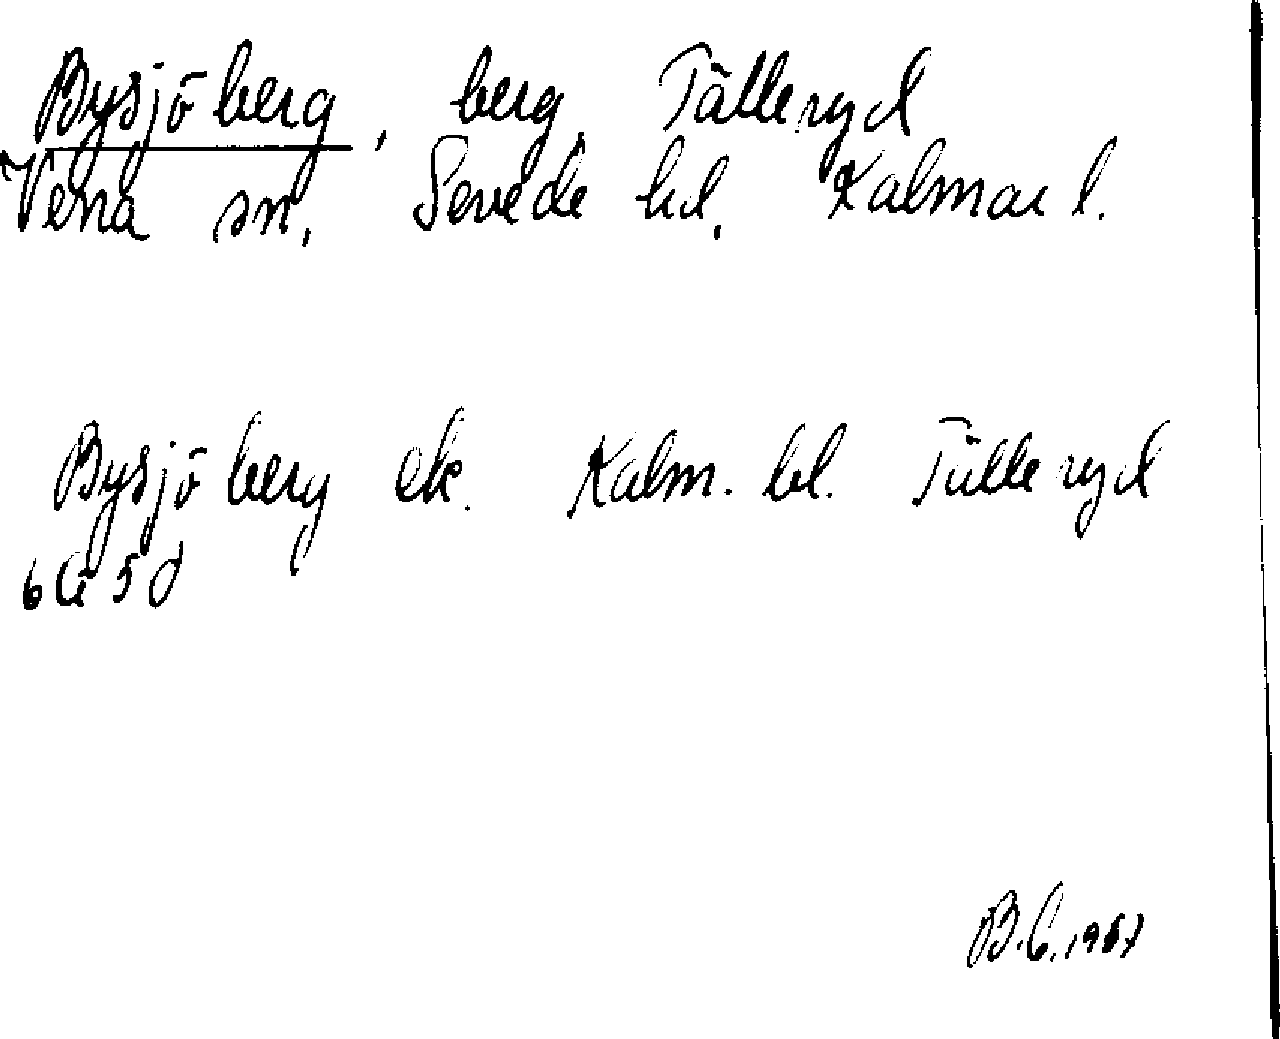 Bysjöberg, berg, Tälleryd
Vena sn, Sevede hd, Kalmar l.
Bysjöberg ek. Kalm. bl. Tälleryd
6G 5d
B.C. 1967